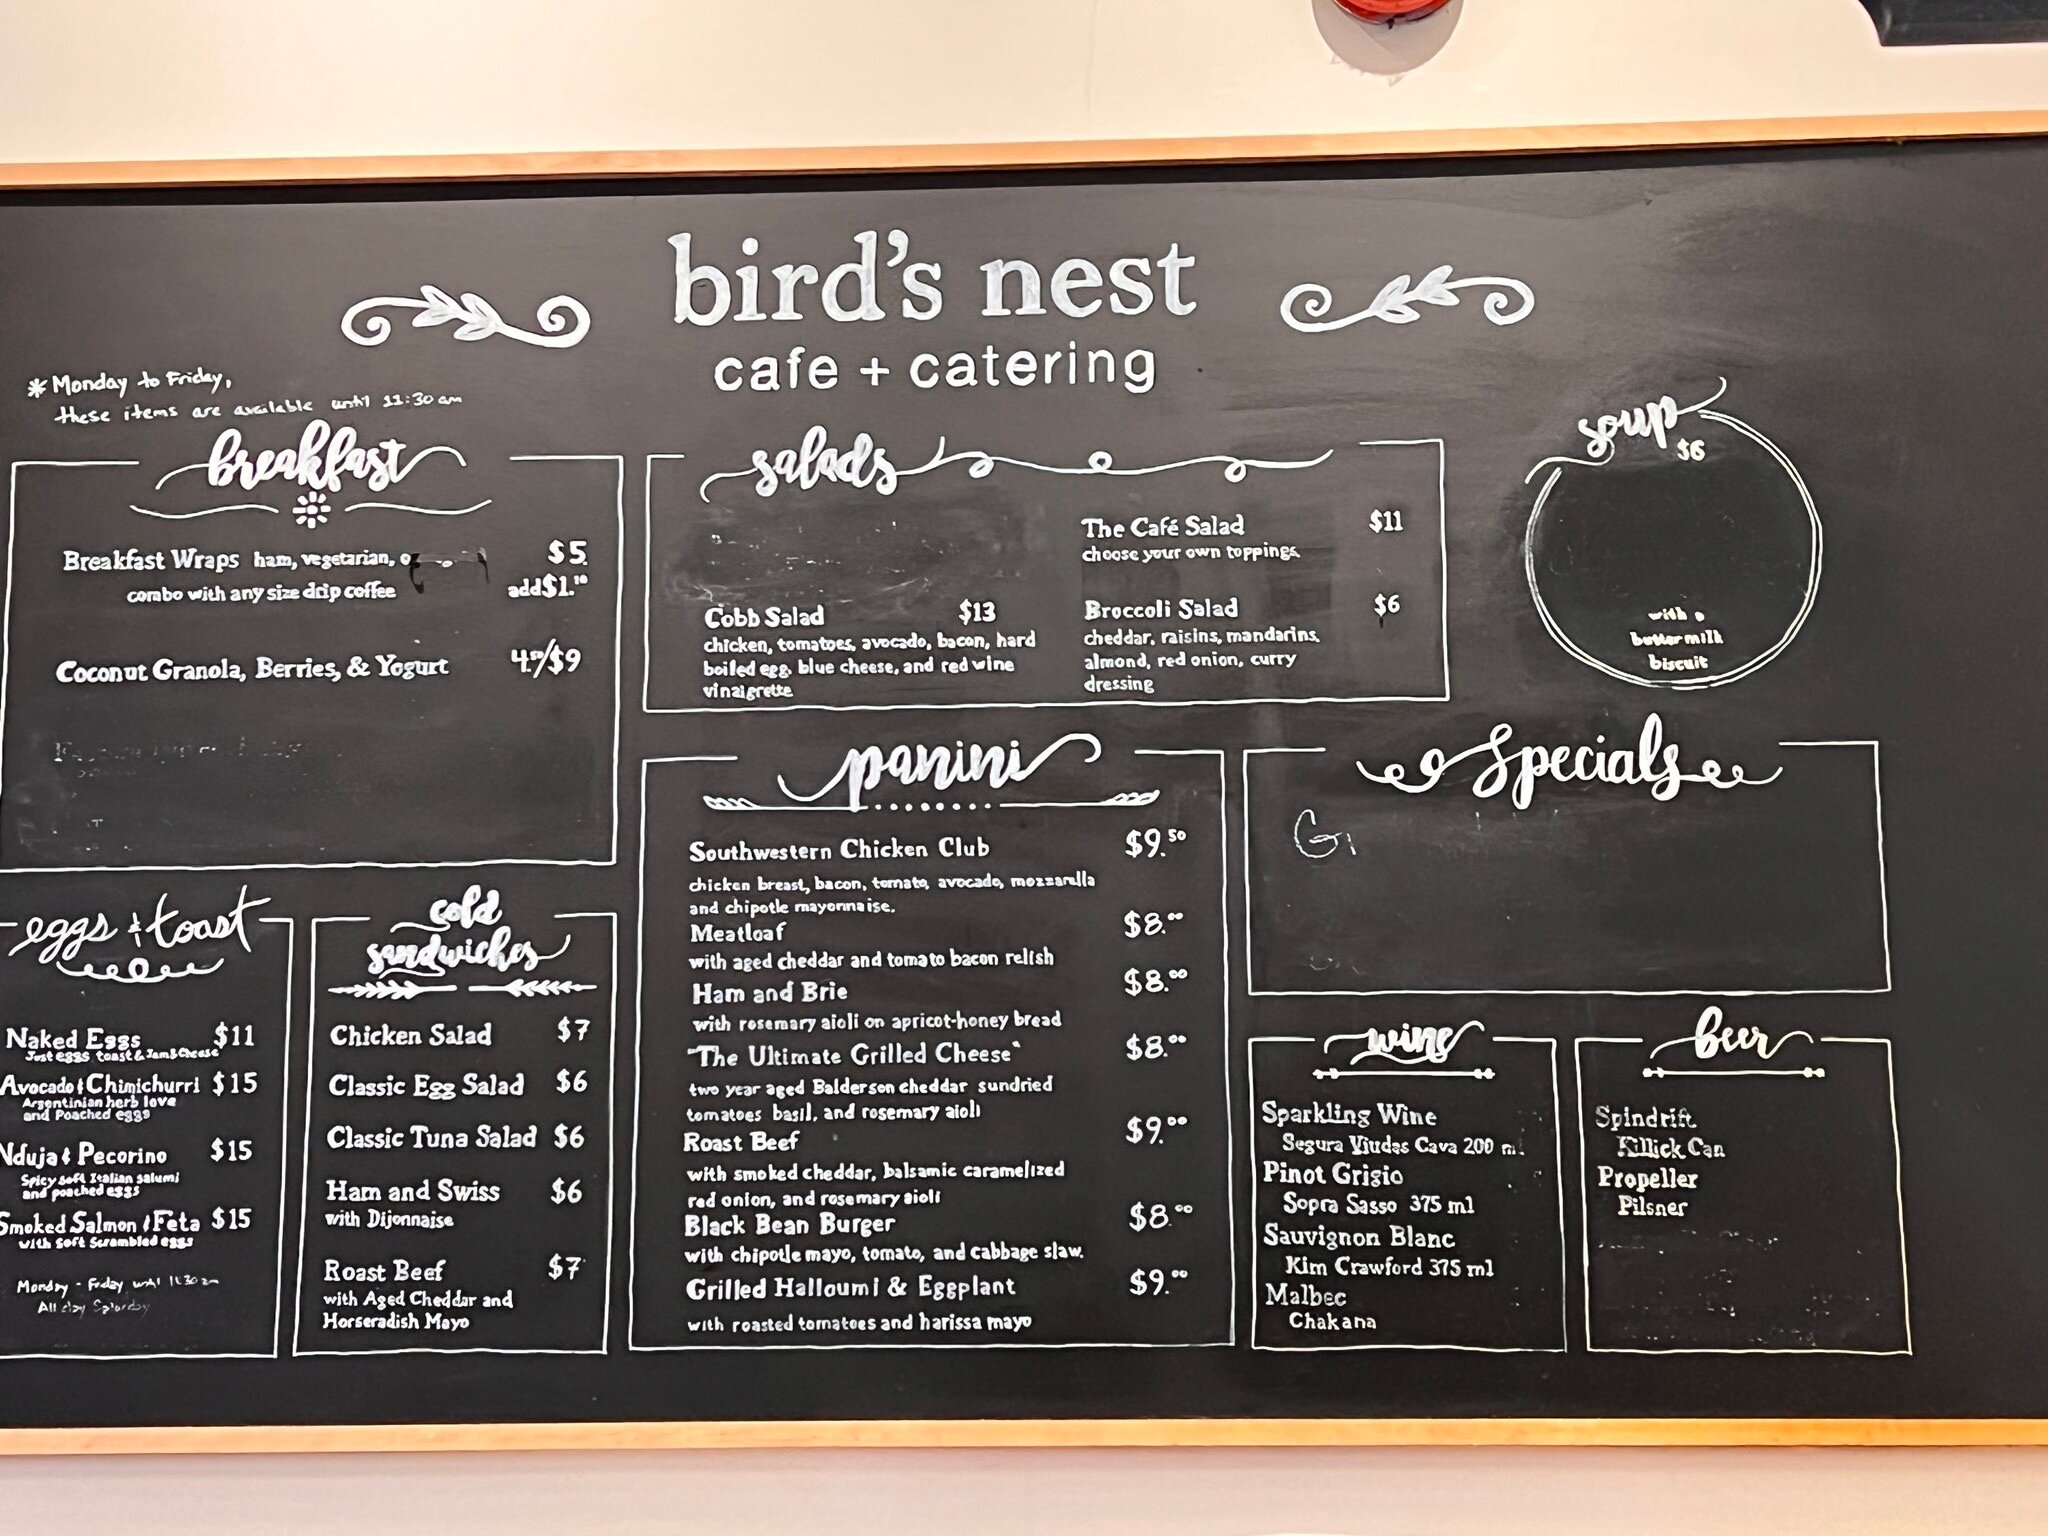 bird's nest
cafe + catering
* Monday to Friday,
these items are available until 11:30 am
breakfast
Breakfast Wraps ham, vegetarian, $5.
combo with any size drip coffee add $1.10
Coconut Granola, Berries, & Yogurt 4.50/$9
salads
Cobb Salad $13
chicken, tomatoes, avocado, bacon, hard
boiled egg, blue cheese, and red wine
vinaigrette
The Café Salad $11
choose your own toppings.
Broccoli Salad $6
cheddar, raisins, mandarins,
almond, red onion, curry
dressing
soup
$6
with a
buttermilk
biscuit
eggs & toast
Naked Eggs $11
Just eggs toast & Jam & Cheese
Avocado & Chimichurri $15
Argentinian herb love
and Poached eggs
Nduja & Pecorino $15
Spicy soft Italian salumi
and poached eggs
Smoked Salmon & Feta $15
with Soft Scrambled eggs
Monday - Friday until 11:30 am
All day Saturday
cold
sandwiches
Chicken Salad $7
Classic Egg Salad $6
Classic Tuna Salad $6
Ham and Swiss $6
with Dijonnaise
Roast Beef $7
with Aged Cheddar and
Horseradish Mayo
panini
Southwestern Chicken Club $9.50
chicken breast, bacon, tomato, avocado, mozzarella
and chipotle mayonnaise.
Meatloaf $8.00
with aged cheddar and tomato bacon relish
Ham and Brie $8.00
with rosemary aioli on apricot-honey bread
"The Ultimate Grilled Cheese" $8.00
two year aged Balderson cheddar sundried
tomatoes basil, and rosemary aioli
Roast Beef $9.00
with smoked cheddar, balsamic caramelized
red onion, and rosemary aioli
Black Bean Burger $8.00
with chipotle mayo, tomato, and cabbage slaw.
Grilled Halloumi & Eggplant $9.00
with roasted tomatoes and harissa mayo
Specials
wine
Sparkling Wine
Segura Viudas Cava 200 ml
Pinot Grigio
Sopra Sasso 375 ml
Sauvignon Blanc
Kim Crawford 375 ml
Malbec
Chakana
beer
Spindrift
Killick Can
Propeller
Pilsner